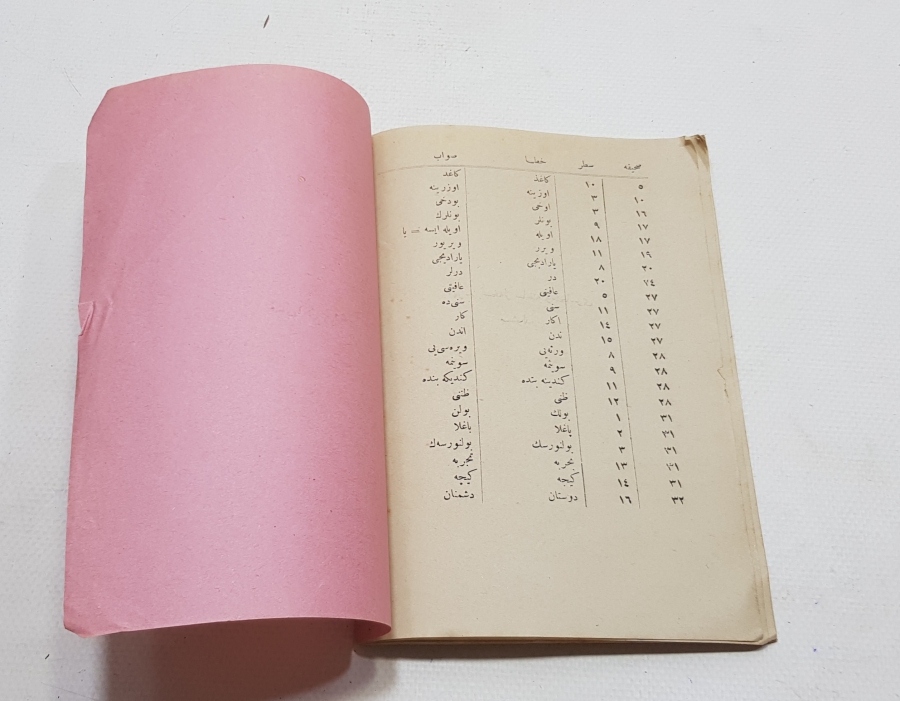 صحیفه سطر خطا صواب
٥ ١٠ کاغذ کاغد
١٠ ٣ اوزینه اوزرینه
١٦ ٣ اوخی بودخی
١٧ ٩ بونلر بونلرك
١٧ ١٨ اویله اویله ایسه = یا
١٩ ١١ ویرر ویریور
٢٠ ٨ یارادیجی یارادیجی
٧٤ ٢٠ در درلر
٢٧ ٥ عاقبتی عاقبتی
٢٧ ١١ سنی سنی ده
٢٧ ١٤ اکار کار
٢٧ ١٥ ندن اندن
٢٨ ٨ ویره سی یی
٢٨ ٩ سوینمه سوینمه
٢٨ ١١ کندینه بنده کندیکه بنده
٢٨ ١٢ ظنی ظننی
٣١ ١ بولك بولن
٣١ ٢ یاغلا باغلا
٣١ ٣ بولنورسك بولنورسه ك
٣١ ١٣ تجربه
٣١ ١٤ کیجه کیچه
٣٢ ١٦ دوستان دشمنان